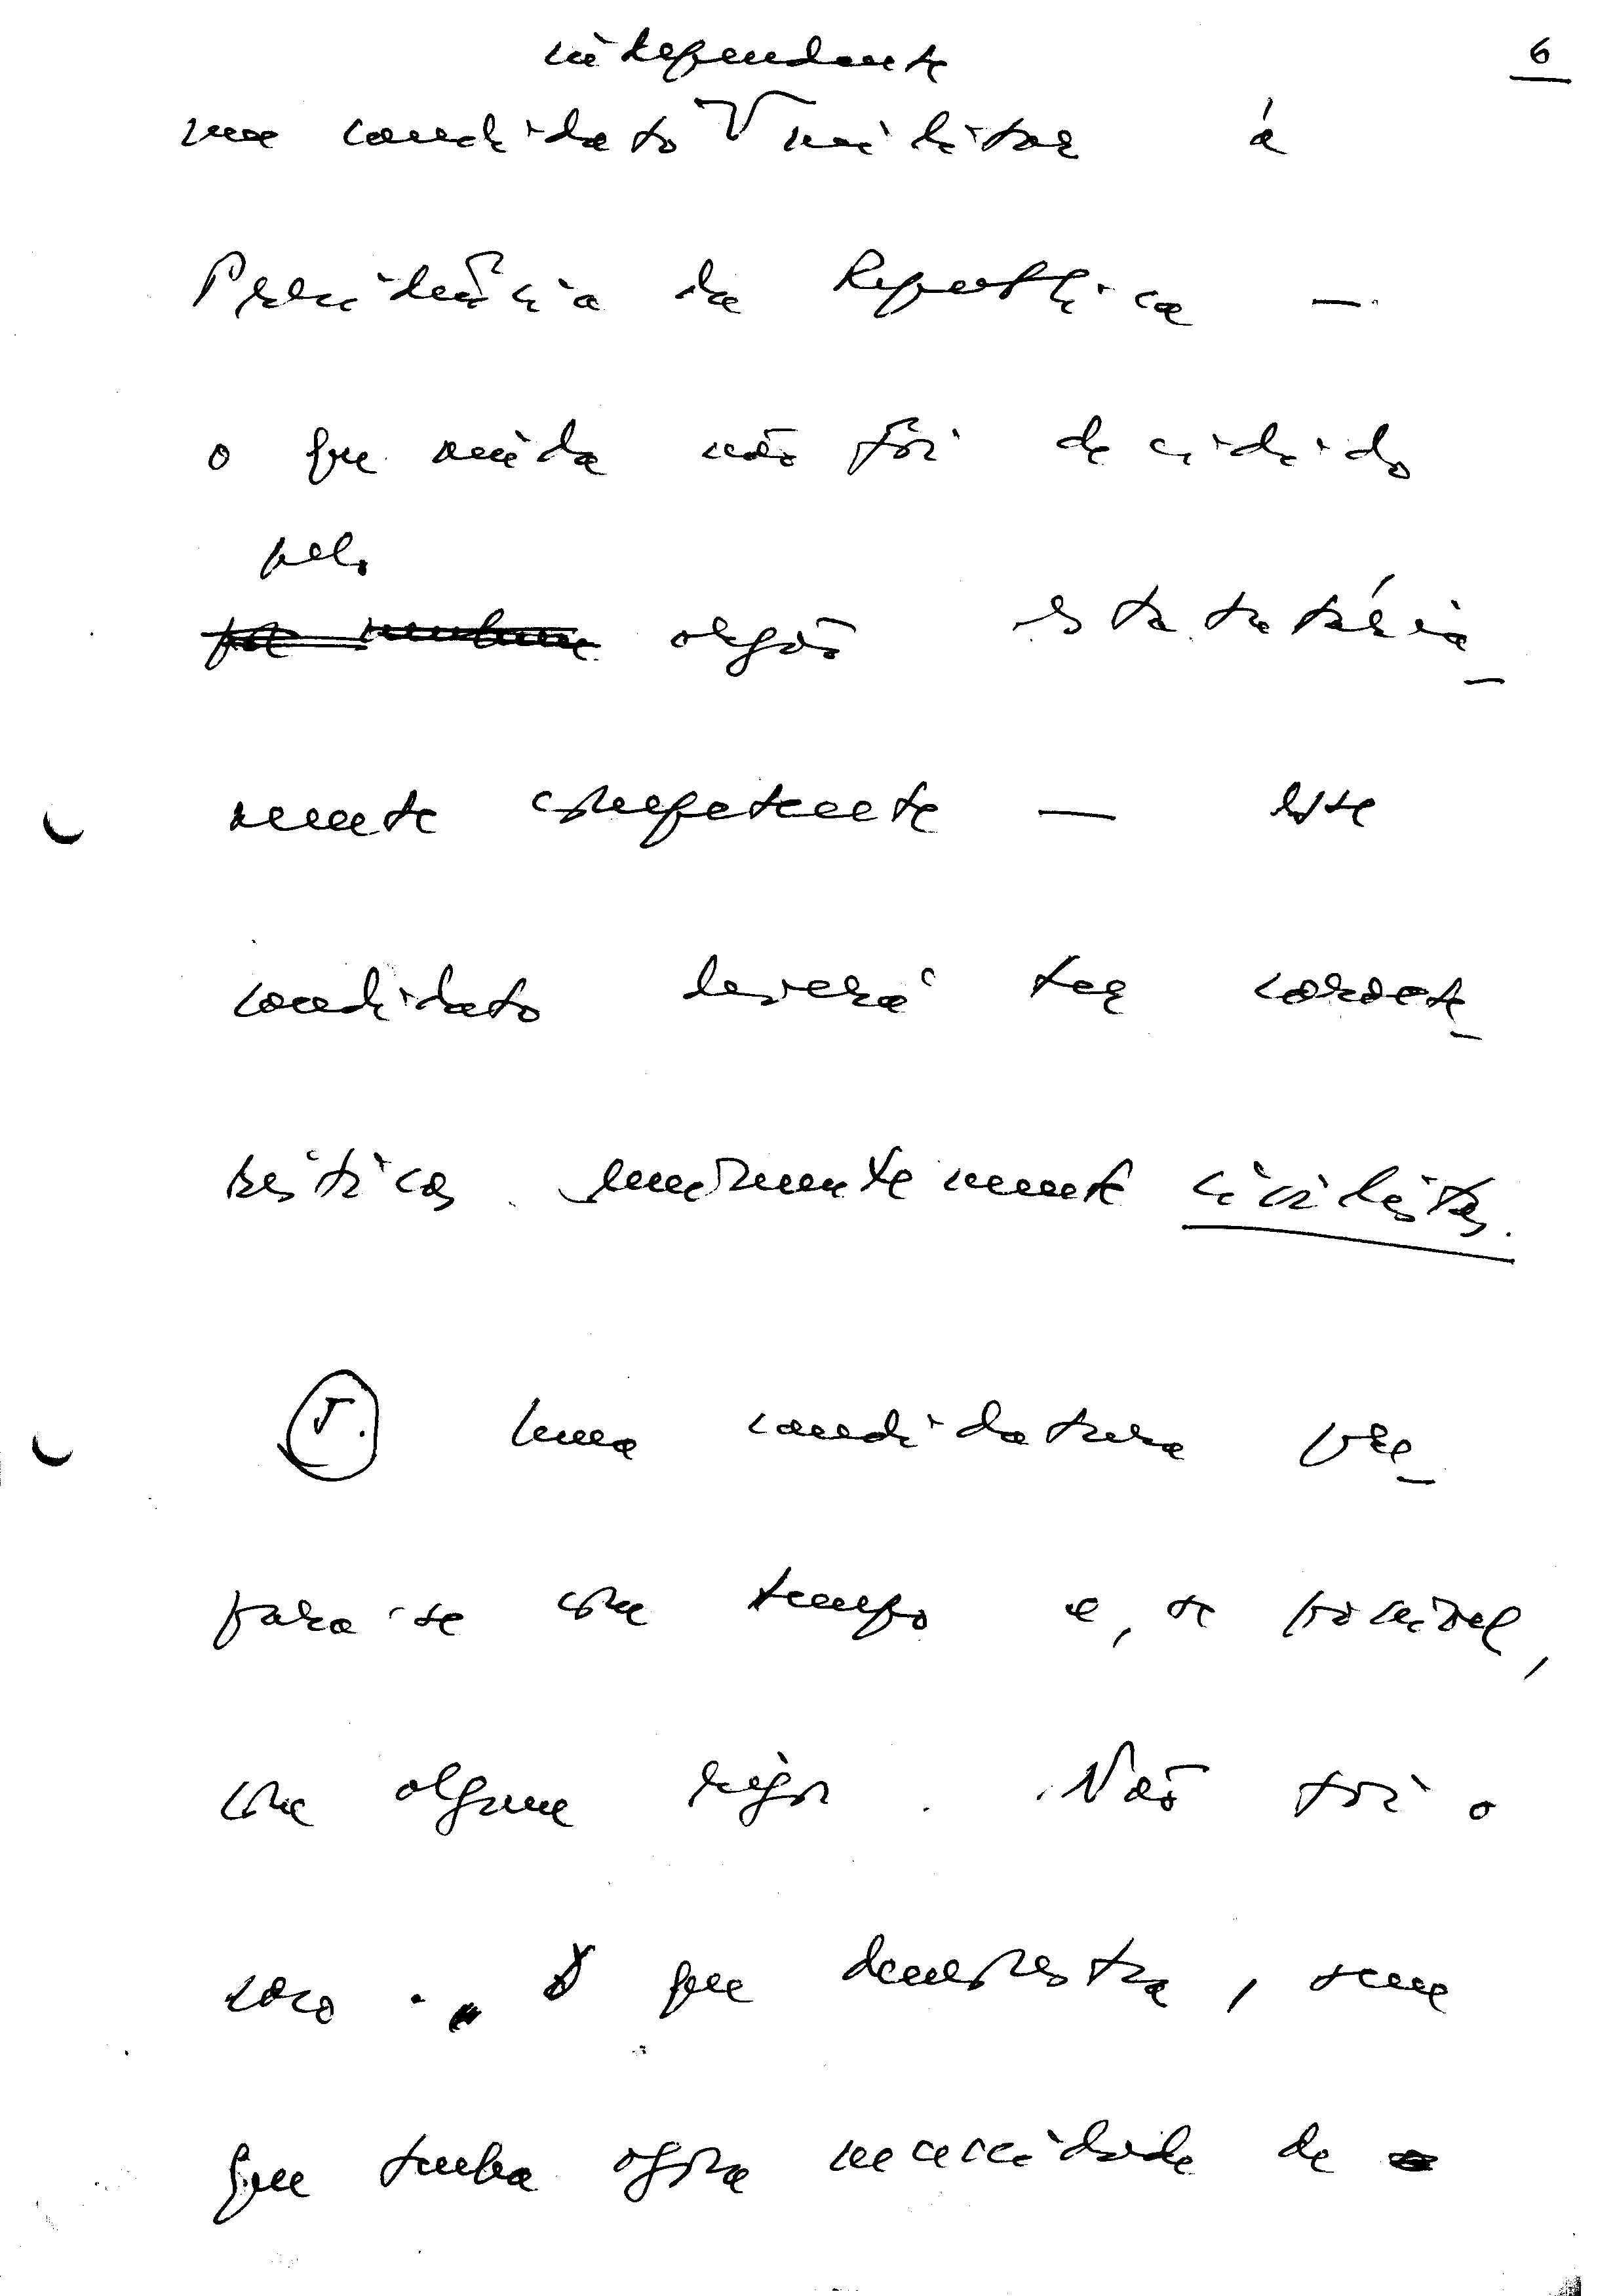 6
independente
um candidato militar à
Presidência da República —
o que ainda não foi decidido
pelo
por nenhum orgão estatutária-
mente competente — este
candidato deverá ter caracte-
rísticas eminentemente civilistas.
5. Uma candidatura pre-
para-se com tempo e, se possível,
com algum rigor. Não foi o
caso. O que demonstra, sem
que tenha agora necessidade de